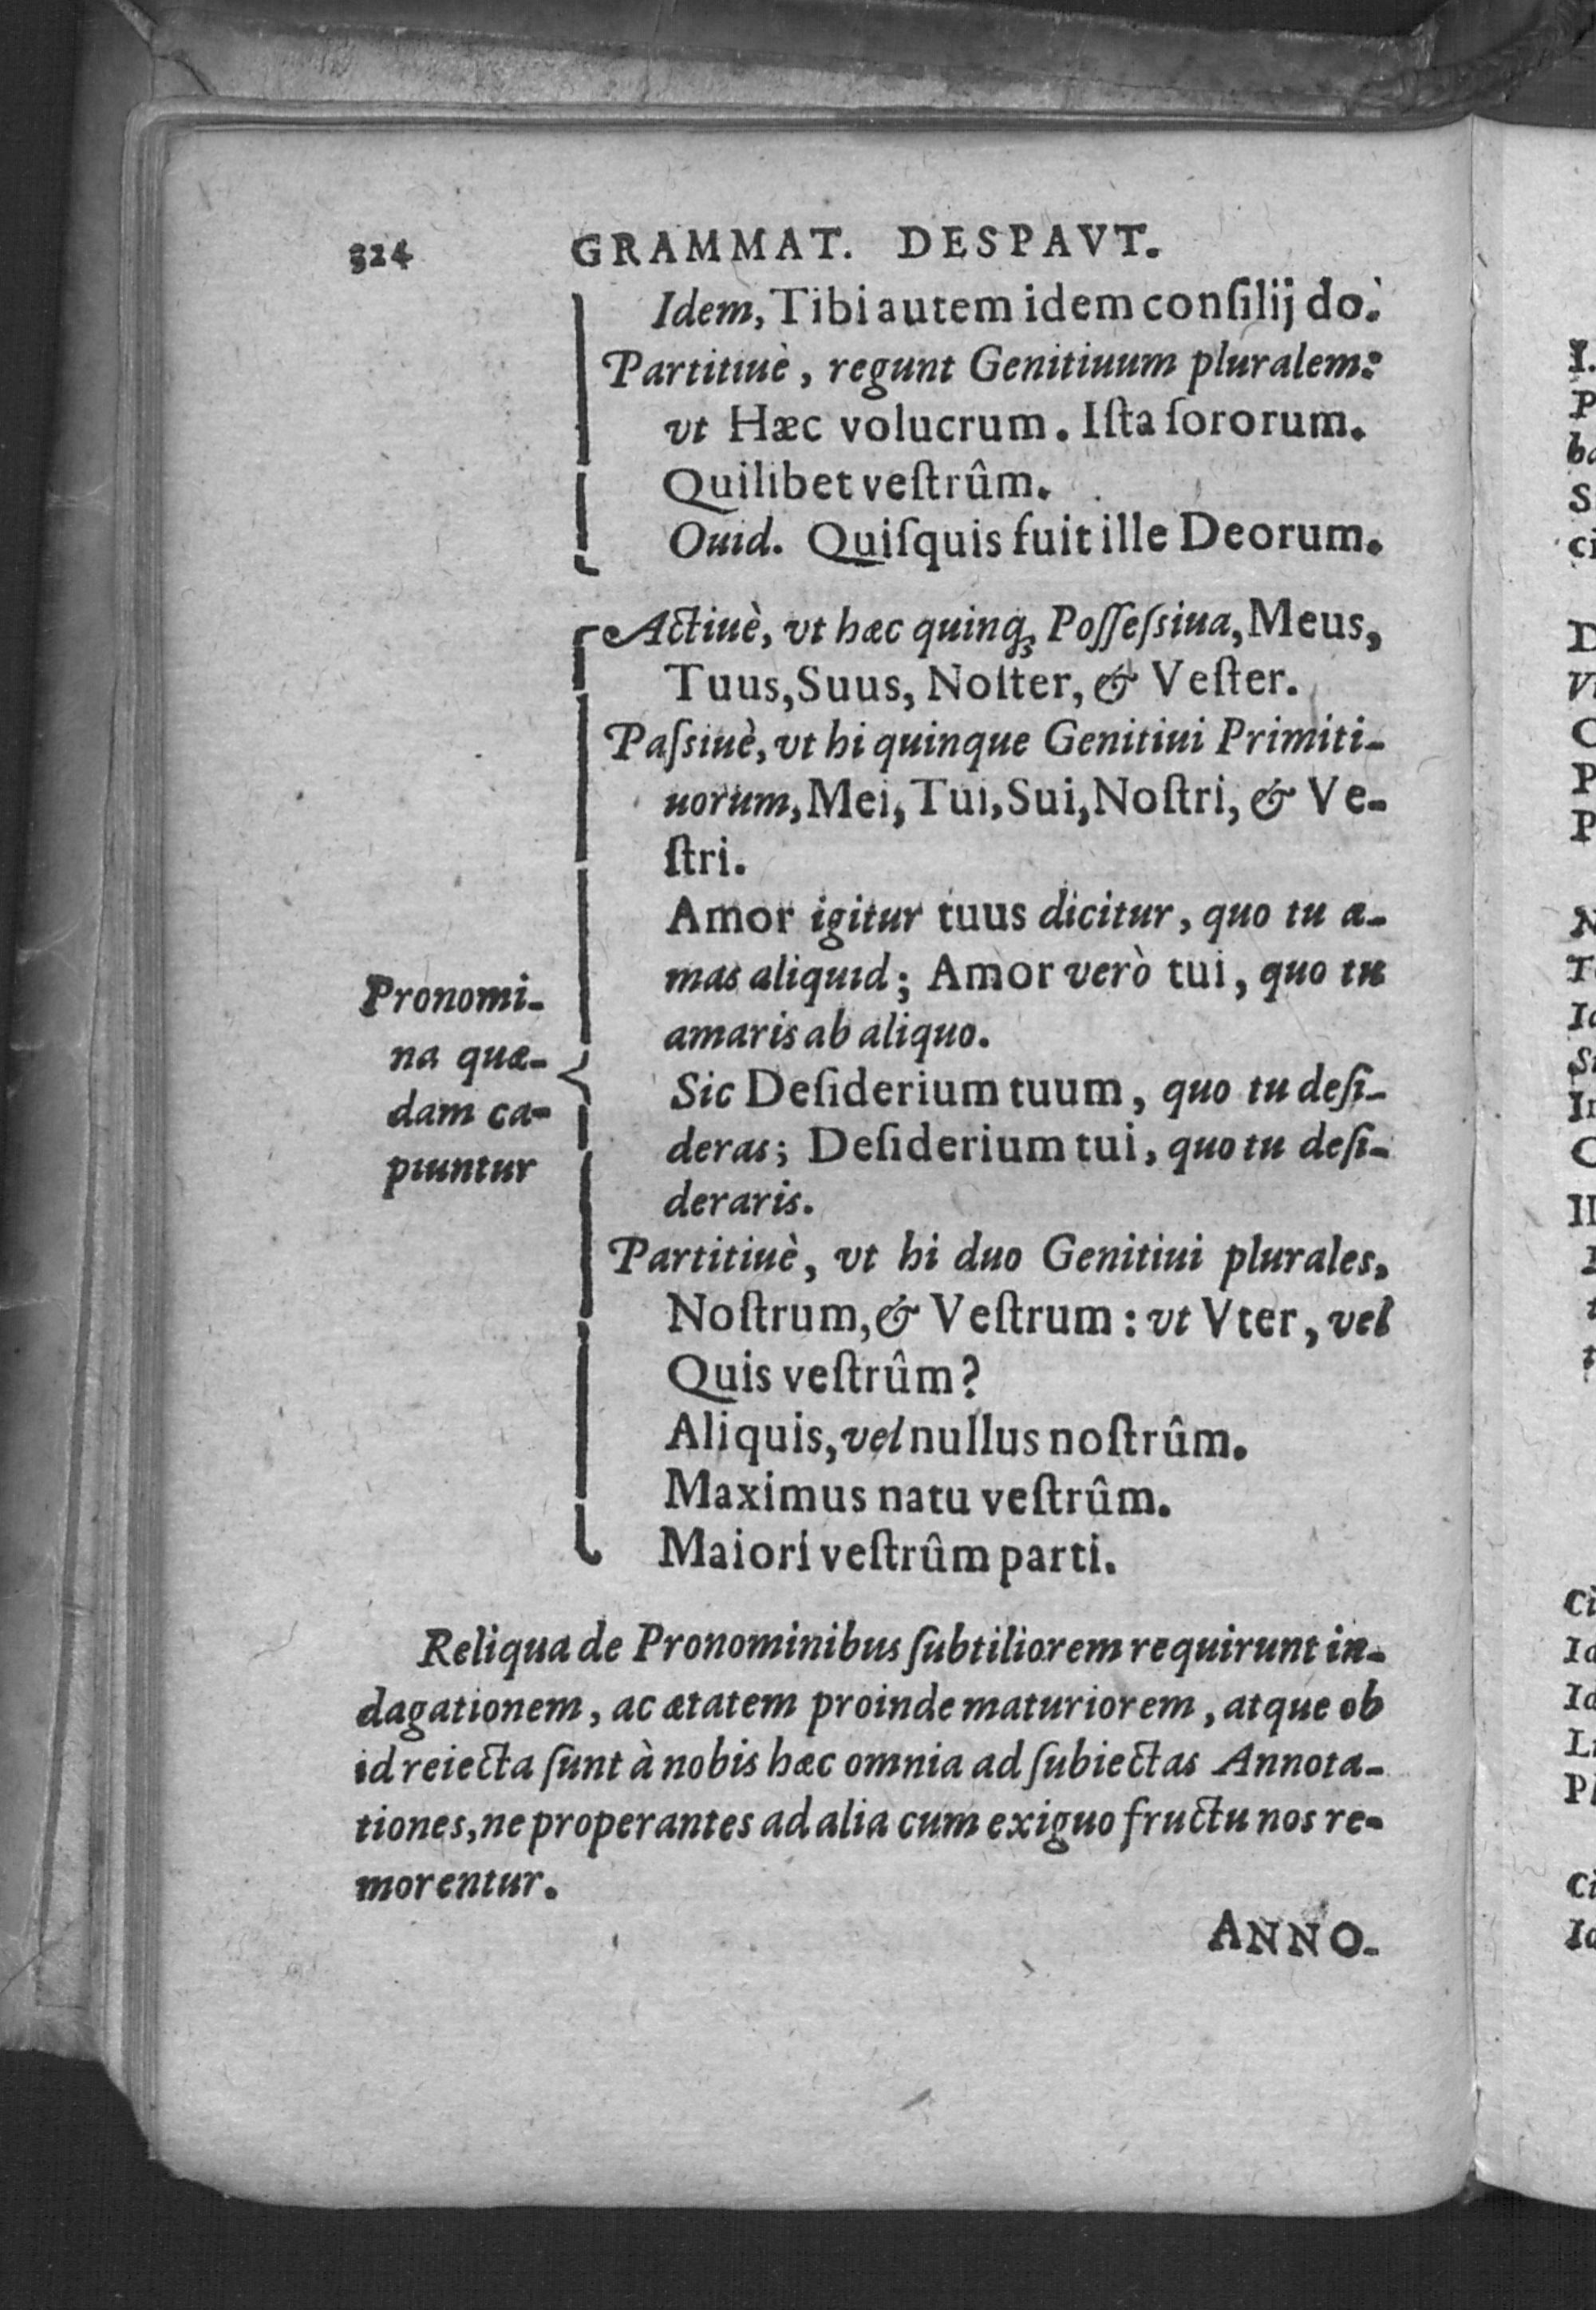 324 GRAMMAT. DESPAVT.
Idem, Tibi autem idem conſilij do.
Partitiuè, regunt Genitiuum pluralem:
vt Hæc volucrum. Iſta ſororum.
Quilibet veſtrûm.
Ouid. Quiſquis fuit ille Deorum.
Actiuè, vt hæc quinq; Poſſeſsiua, Meus,
Tuus, Suus, Noſter, & Veſter.
Paſsiuè, vt hi quinque Genitiui Primiti-
uorum, Mei, Tui, Sui, Noſtri, & Ve-
ſtri.
Amor igitur tuus dicitur, quo tu a-
mas aliquid; Amor verò tui, quo tu
amaris ab aliquo.
Sic Deſiderium tuum, quo tu deſi-
deras; Deſiderium tui, quo tu deſi-
deraris.
Pronomi-
na quæ-
dam ca-
piuntur
Partitiuè, vt hi duo Genitiui plurales,
Noſtrum, & Veſtrum: vt Vter, vel
Quis veſtrûm?
Aliquis, vel nullus noſtrûm.
Maximus natu veſtrûm.
Maiori veſtrûm parti.
Reliqua de Pronominibus ſubtiliorem requirunt in-
dagationem, ac ætatem proinde maturiorem, atque ob
id reiecta ſunt à nobis hæc omnia ad ſubiectas Annota-
tiones, ne properantes ad alia cum exiguo fructu nos re-
morentur.
ANNO-